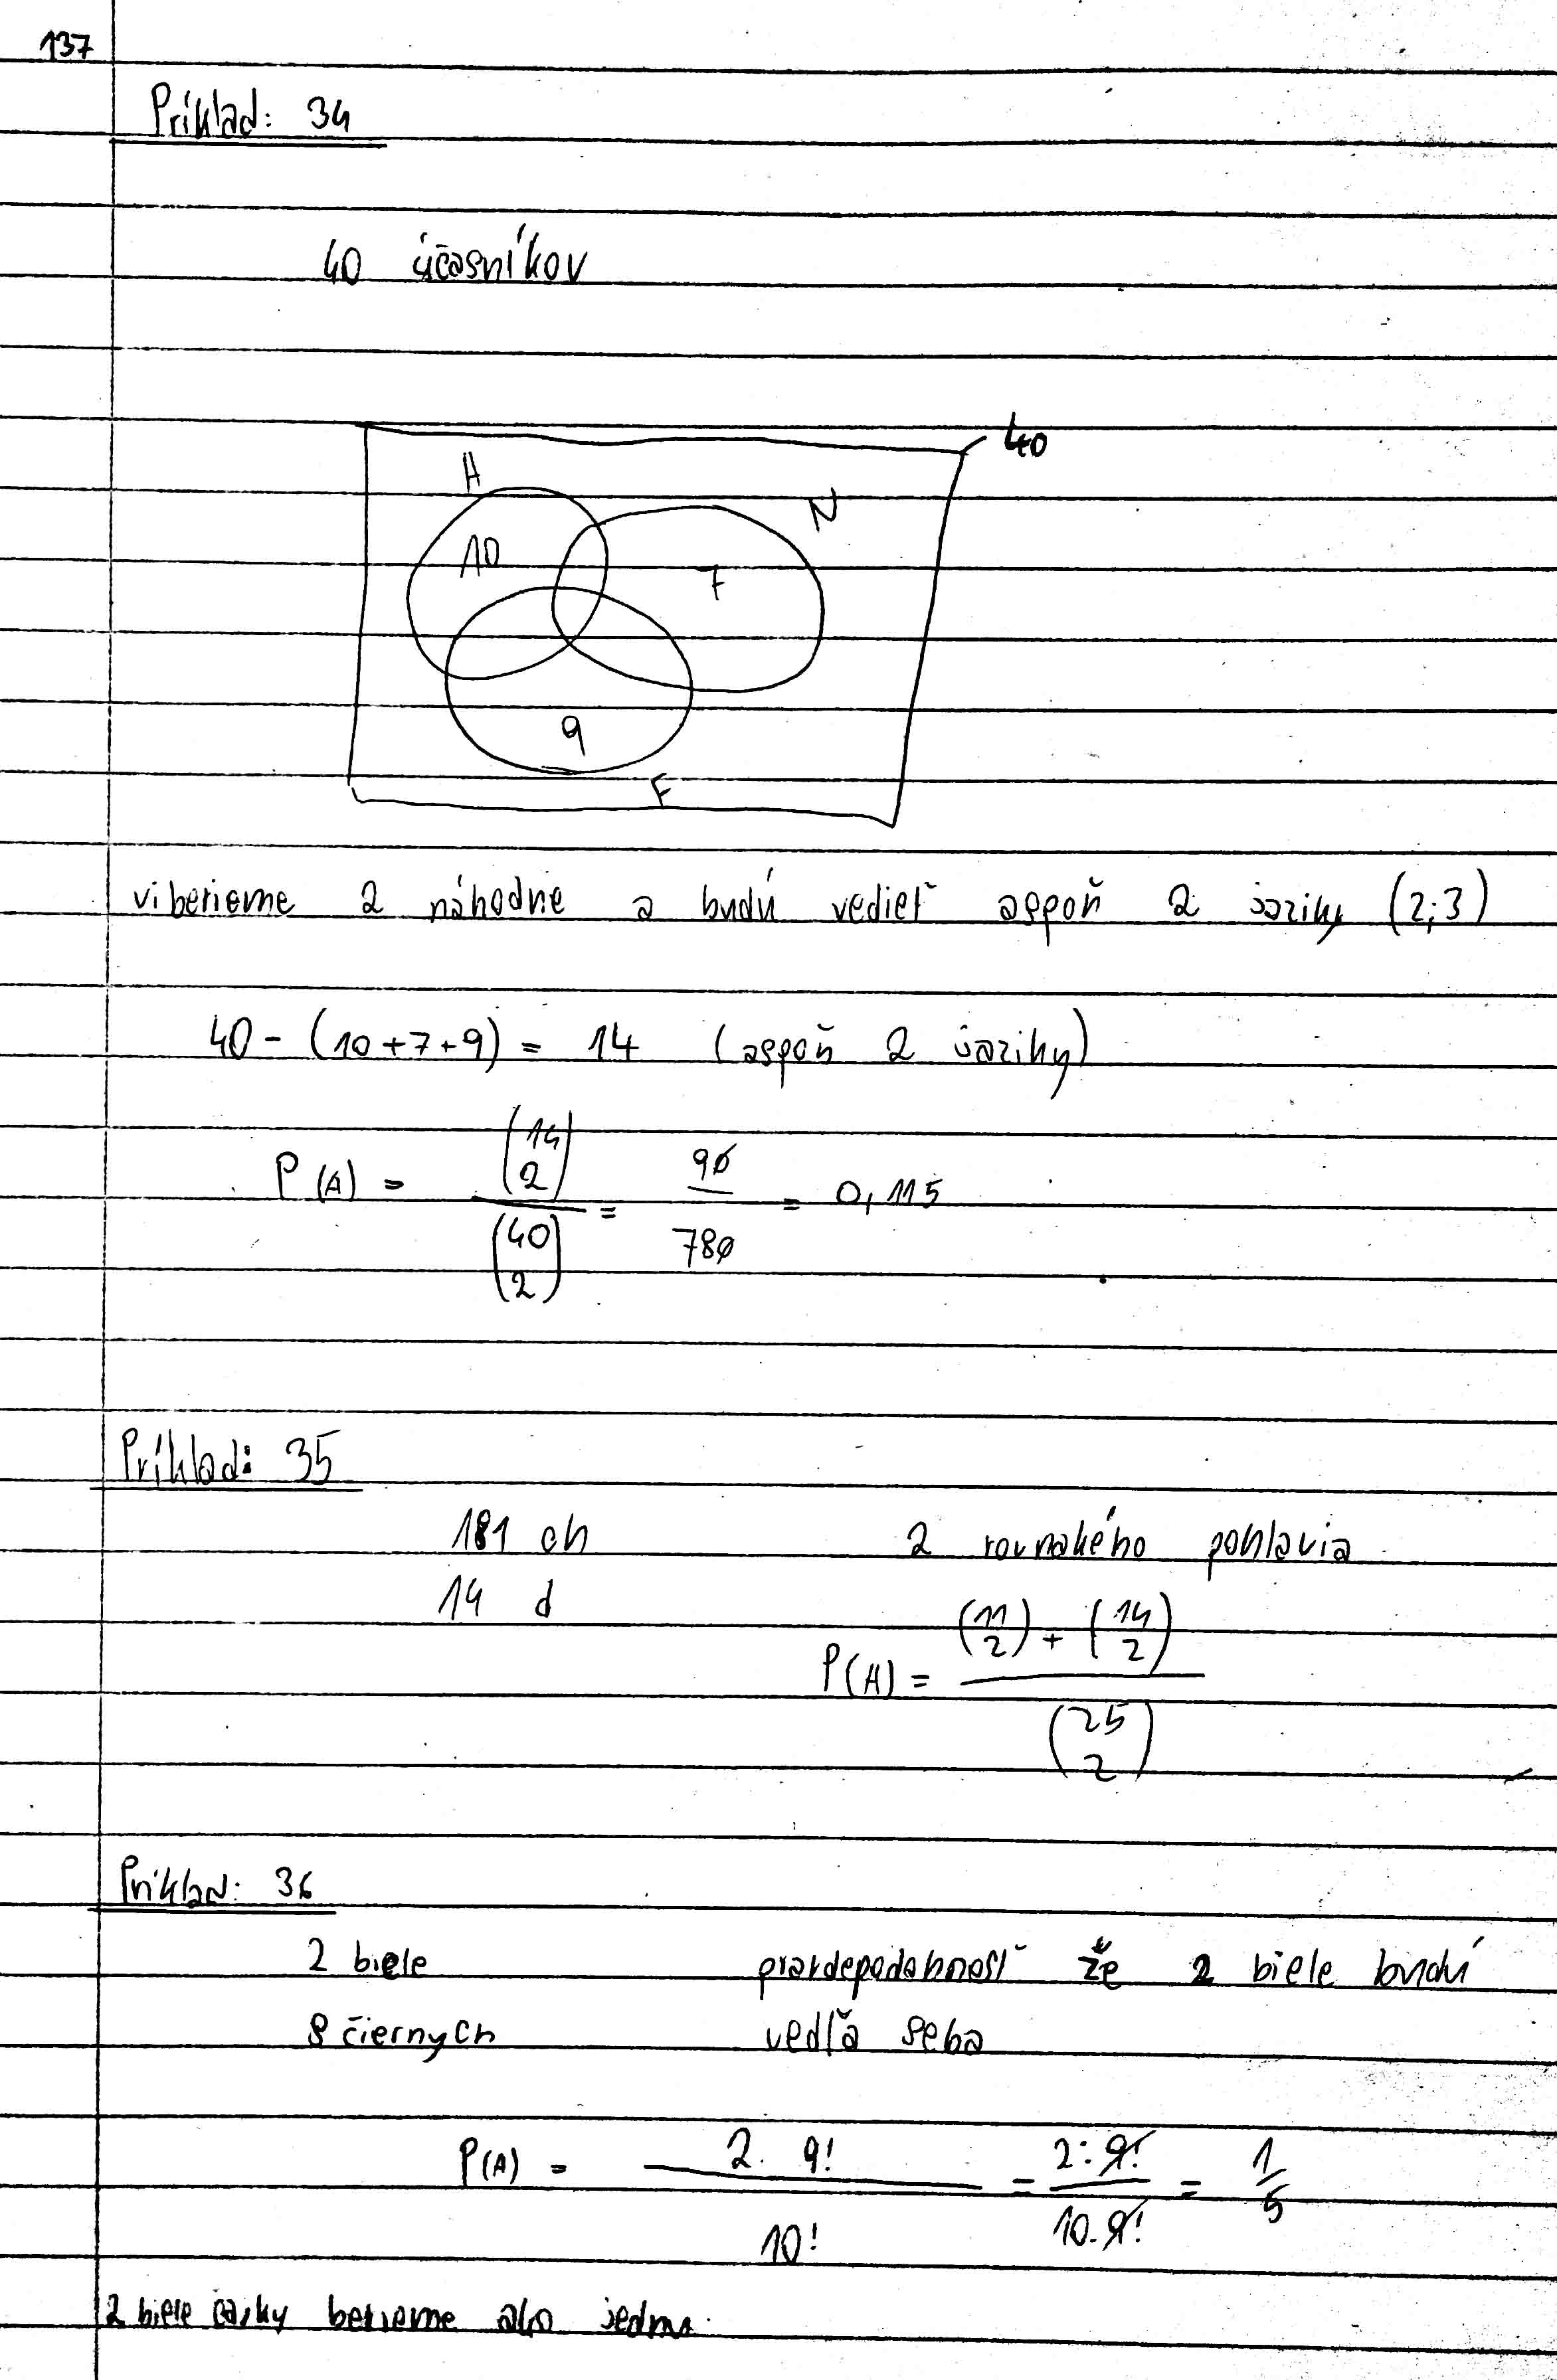 137
Príklad: 34
40 účasníkov
40
A
N
10
7
9
F
viberieme 2 náhodne a budú vedieť aspoň 2 jaziky (2;3)
40 - (10+7+9) = 14 (aspoň 2 jaziky)
P(A) = (14 2) / (40 2) = 90 / 780 = 0,115
Príklad: 35
11 ch 2 rovnakého pohlavia
14 d
P(A) = (11 2) + (14 2) / (25 2)
Príklad: 36
2 biele pravdepodobnosť že 2 biele budú
8 čiernych vedľa seba
P(A) = 2. 9! / 10! = 2.9! / 10.9! = 1/5
2 biele berieme ako jednu.